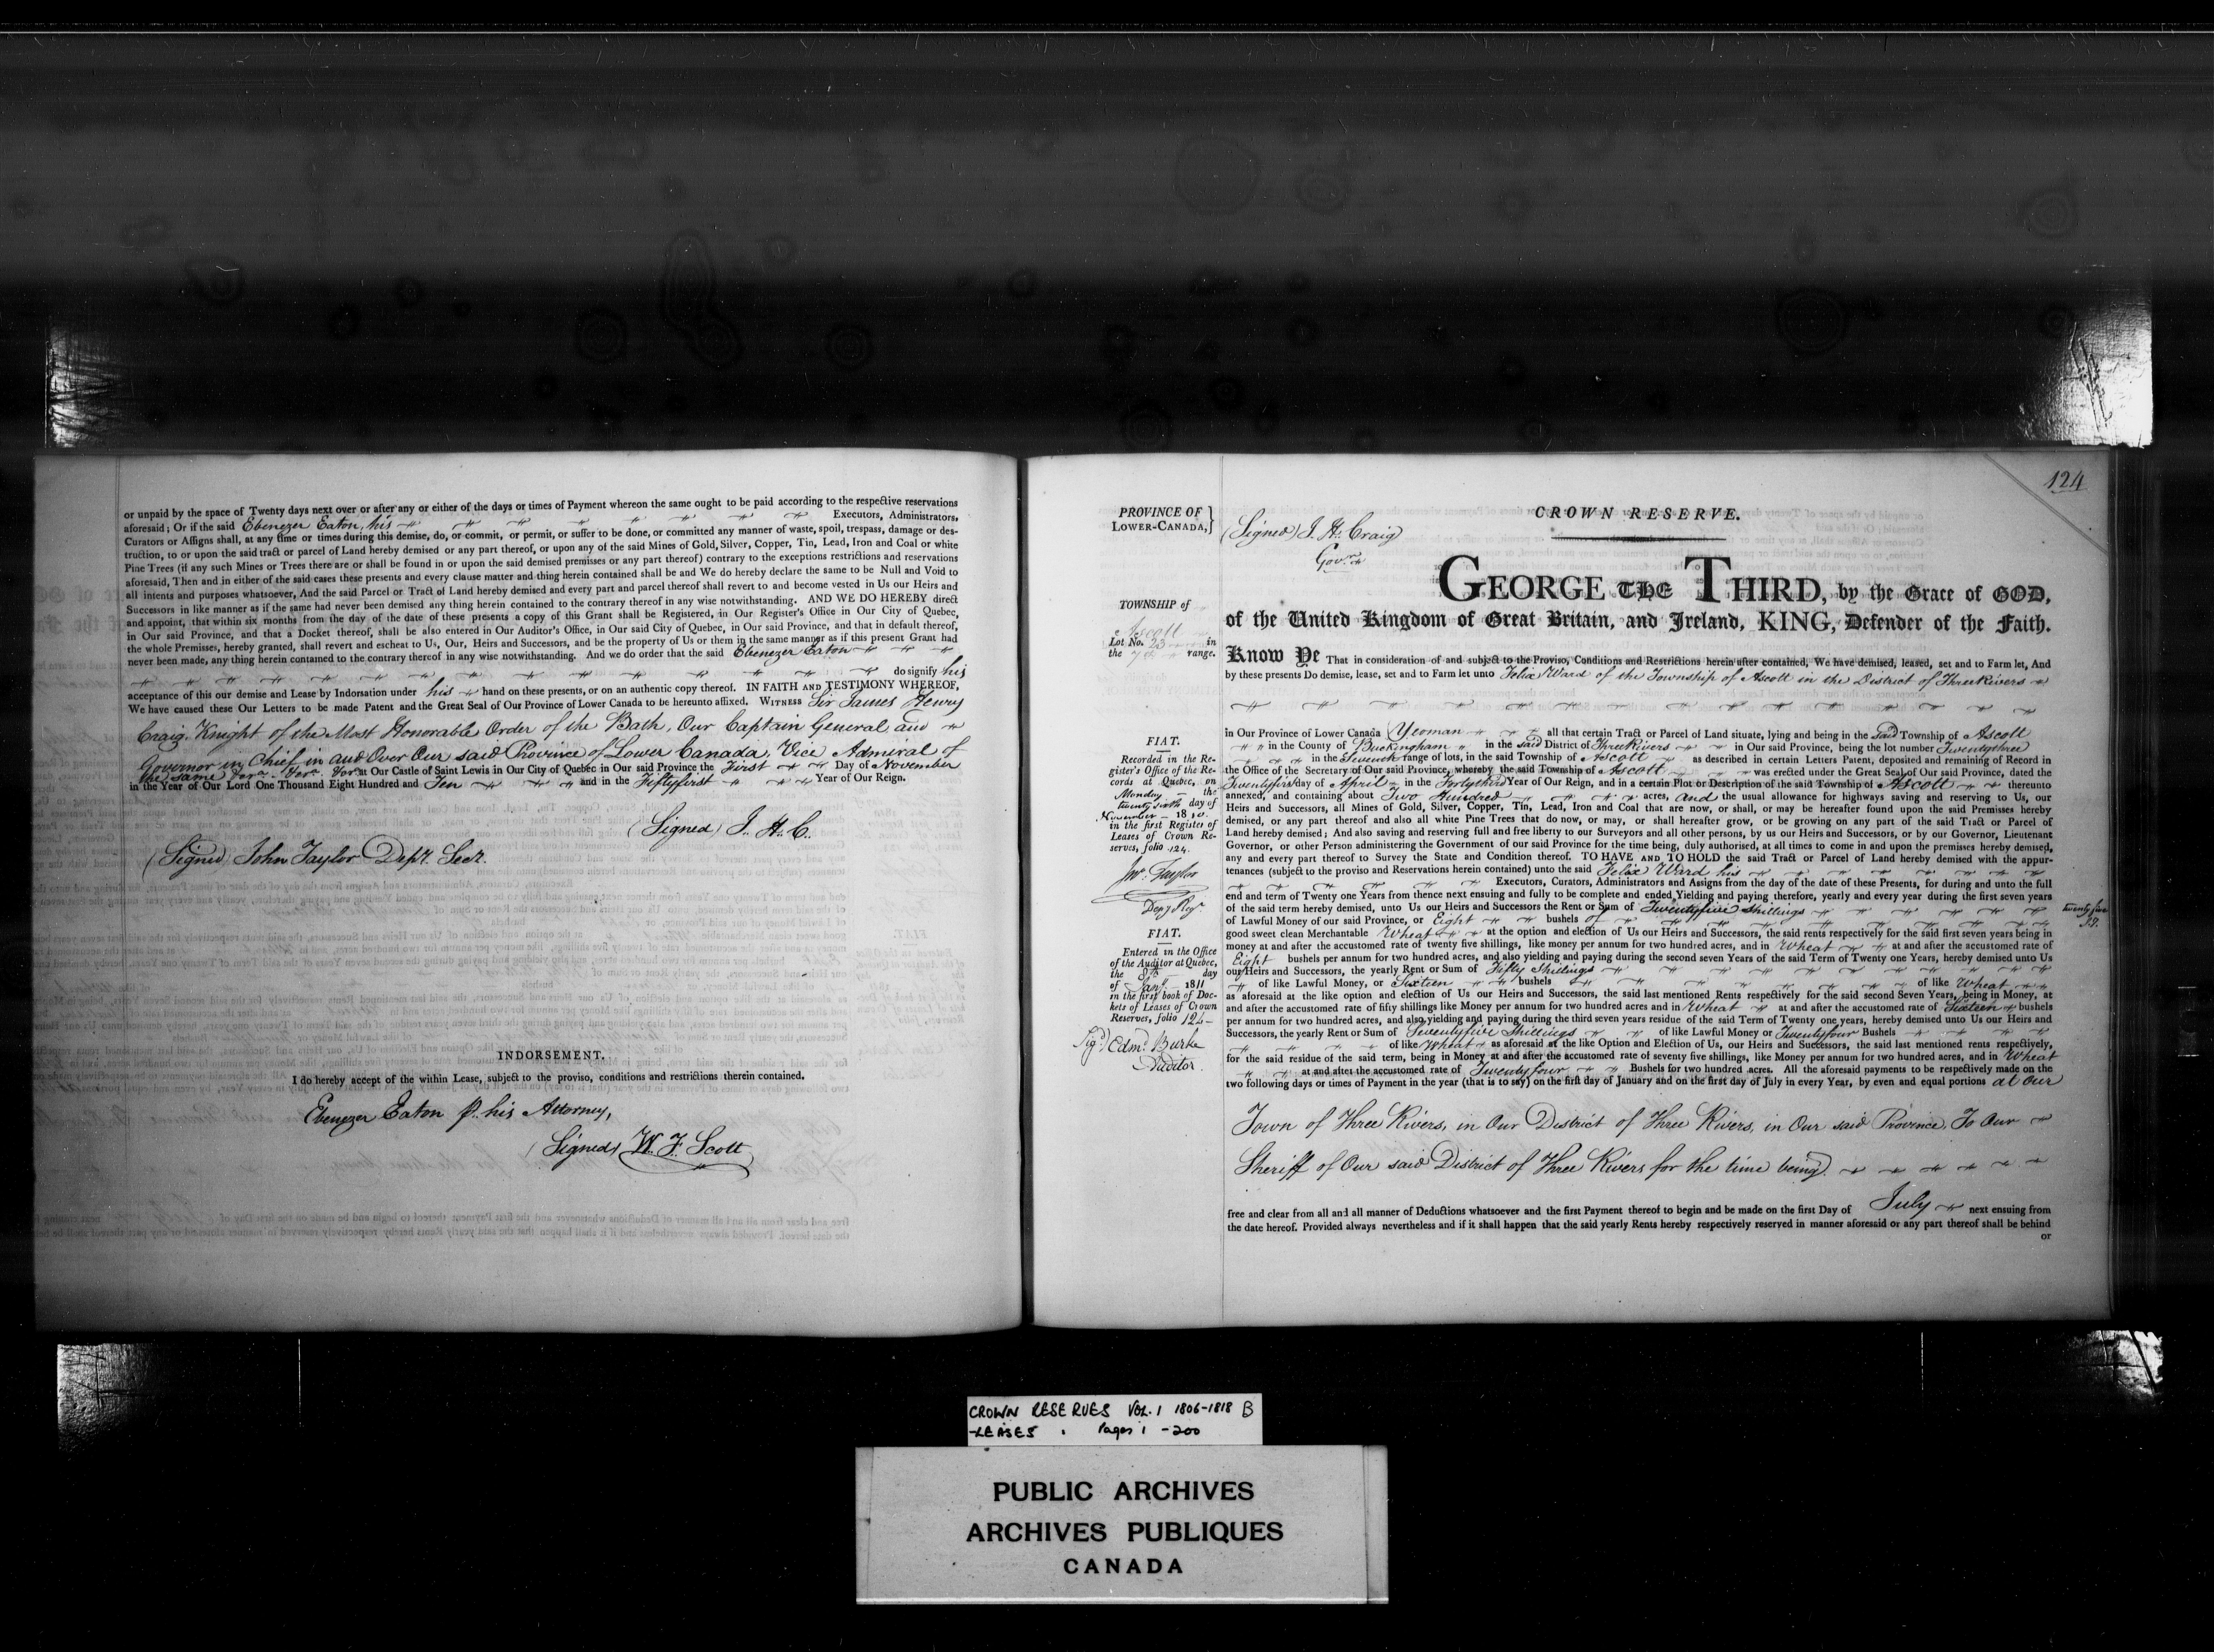 or unpaid by the space of Twenty days next over or after any or either of the days or times of Payment whereon the same ought to be paid according to the respective reservations
aforesaid; Or if the said Ebenezer Eaton, his Executors, Administrators,
Curators or Assigns shall, at any time or times during this demise, do, or commit, or permit, or suffer to be done, or committed any manner of waste, spoil, trespass, damage or des-
truction, to or upon the said tract or parcel of Land hereby demised or any part thereof, or upon any of the said Mines of Gold, Silver, Copper, Tin, Lead, Iron and Coal or white
Pine Trees (if any such Mines or Trees there are or shall be found in or upon the said demised premises or any part thereof) contrary to the exceptions restrictions and reservations
aforesaid, Then and in either of the said cases these presents and every clause matter and thing herein contained shall be and We do hereby declare the same to be Null and Void to
all intents and purposes whatsoever, And the said Parcel or Tract of Land hereby demised and every part and parcel thereof shall revert to and become vested in Us our Heirs and
Successors in like manner as if the same had never been demised any thing herein contained to the contrary thereof in any wise notwithstanding. AND WE DO HEREBY direct
and appoint, that within six months from the day of the date of these presents a copy of this Grant shall be Registered, in Our Register's Office in Our City of Quebec,
in Our said Province, and that a Docket thereof, shall be also entered in Our Auditor's Office, in Our said City of Quebec, in Our said Province, and that in default thereof,
the whole Premisses, hereby granted, shall revert and escheat to Us, Our, Heirs and Successors, and be the property of Us or them in the same manner as if this present Grant had
never been made, any thing herein contained to the contrary thereof in any wise notwithstanding. And we do order that the said Ebenezer Eaton
do signify his
acceptance of this our demise and Lease by Indorsation under his hand on these presents, or on an authentic copy thereof. IN FAITH AND TESTIMONY WHEREOF,
We have caused these Our Letters to be made Patent and the Great Seal of Our Province of Lower Canada to be hereunto affixed. WITNESS Sir James Henry
Craig, Knight of the Most Honorable Order of the Bath, Our Captain General and
Governor in Chief in and Over Our said Province of Lower Canada, Vice Admiral of
the same at Our Castle of Saint Lewis in Our City of Quebec in Our said Province the First Day of November
in the Year of Our Lord One Thousand Eight Hundred and Ten and in the Fiftyfirst Year of Our Reign.
(Signed) J. H. C.
(Signed) John Taylor Depy. Secr.
INDORSEMENT.
I do hereby accept of the within Lease, subject to the proviso, conditions and restrictions therein contained.
Ebenezer Eaton p. his Attorney,
(Signed) W. F. Scott
124
PROVINCE OF
LOWER-CANADA,}
(Signed) J. H. Craig
Govr.
CROWN RESERVE.
TOWNSHIP of
Ascott
Lot No. 23 in
the 7th range.
GEORGE THE THIRD, by the Grace of GOD,
of the United Kingdom of Great Britain, and Ireland, KING, Defender of the Faith.
Know Ye That in consideration of and subject to the Proviso, Conditions and Restrictions herein after contained, We have demised, leased, set and to Farm let, And
by these presents Do demise, lease, set and to Farm let unto Felix Ward of the Township of Ascott in the District of Three Rivers
in Our Province of Lower Canada Yeoman all that certain Tract or Parcel of Land situate, lying and being in the said Township of Ascott
in the County of Buckingham in the said District of Three Rivers in Our said Province, being the lot number Twentythree
in the Seventh range of lots, in the said Township of Ascott as described in certain Letters Patent, deposited and remaining of Record in
the Office of the Secretary of Our said Province, whereby the said Township of Ascott was erected under the Great Seal of Our said Province, dated the
Twentyfirst day of April in the Fortythird Year of Our Reign, and in a certain Plot or Description of the said Township of Ascott thereunto
annexed, and containing about Two Hundred acres, and the usual allowance for highways saving and reserving to Us, our
Heirs and Successors, all Mines of Gold, Silver, Copper, Tin, Lead, Iron and Coal that are now, or shall, or may be hereafter found upon the said Premises hereby
demised, or any part thereof and also all white Pine Trees that do now, or may, or shall hereafter grow, or be growing on any part of the said Tract or Parcel of
Land hereby demised; And also saving and reserving full and free liberty to our Surveyors and all other persons, by us our Heirs and Successors, or by our Governor, Lieutenant
Governor, or other Person administering the Government of our said Province for the time being, duly authorised, at all times to come in and upon the premises hereby demised,
any and every part thereof to Survey the State and Condition thereof. TO HAVE AND TO HOLD the said Tract or Parcel of Land hereby demised with the appur-
tenances (subject to the proviso and Reservations herein contained) unto the said Felix Ward his
Executors, Curators, Administrators and Assigns from the day of the date of these Presents, for during and unto the full
end and term of Twenty one Years from thence next ensuing and fully to be complete and ended, Yielding and paying therefore, yearly and every year during the first seven years
of the said term hereby demised, unto Us our Heirs and Successors the Rent or Sum of Twentyfive Shillings
of Lawful Money of our said Province, or Eight bushels of
good sweet clean Merchantable Wheat at the option and election of Us our Heirs and Successors, the said rents respectively for the said first seven years being in
money at and after the accustomed rate of twenty five shillings, like money per annum for two hundred acres, and in Wheat at and after the accustomed rate of
Eight bushels per annum for two hundred acres, and also yielding and paying during the second seven Years of the said Term of Twenty one Years, hereby demised unto Us
our Heirs and Successors, the yearly Rent or Sum of Fifty Shillings
of like Lawful Money, or Sixteen bushels of like Wheat
as aforesaid at the like option and election of Us our Heirs and Successors, the said last mentioned Rents respectively for the said second Seven Years, being in Money, at
and after the accustomed rate of fifty shillings like Money per annum for two hundred acres and in Wheat at and after the accustomed rate of Sixteen bushels
per annum for two hundred acres, and also yielding and paying during the third seven years residue of the said Term of Twenty one years, hereby demised unto Us our Heirs and
Successors, the yearly Rent or Sum of Seventyfive Shillings of like Lawful Money or Twentyfour Bushels
of like Wheat as aforesaid at the like Option and Election of Us, our Heirs and Successors, the said last mentioned rents respectively,
for the said residue of the said term, being in Money at and after the accustomed rate of seventy five shillings, like Money per annum for two hundred acres, and in Wheat
at and after the accustomed rate of Twentyfour Bushels for two hundred acres. All the aforesaid payments to be respectively made on the
two following days or times of Payment in the year (that is to say) on the first day of January and on the first day of July in every Year, by even and equal portions at Our
Town of Three Rivers, in Our District of Three Rivers, in Our said Province, To Our
Sheriff of Our said District of Three Rivers for the time being
free and clear from all and all manner of Deductions whatsoever and the first Payment thereof to begin and be made on the first Day of July next ensuing from
the date hereof. Provided always nevertheless and if it shall happen that the said yearly Rents hereby respectively reserved in manner aforesaid or any part thereof shall be behind
or
FIAT.
Recorded in the Re-
gister's Office of the Re-
cords at Quebec, on
Monday the
twenty sixth day of
November 1810.
in the first Register of
Leases of Crown Re-
serves, folio 124.
Jno. Taylor
Depy Regr.
FIAT.
Entered in the Office
of the Auditor at Quebec,
the 8th day
of Jany. 1811
in the first book of Doc-
kets of Leases of Crown
Reserves, folio 124
Sigd. Edmd. Burke
Auditor.
twenty five
CROWN RESERVES VOL. 1 1806-1818 B
-LEASES . Pages 1 - 200
PUBLIC ARCHIVES
ARCHIVES PUBLIQUES
CANADA